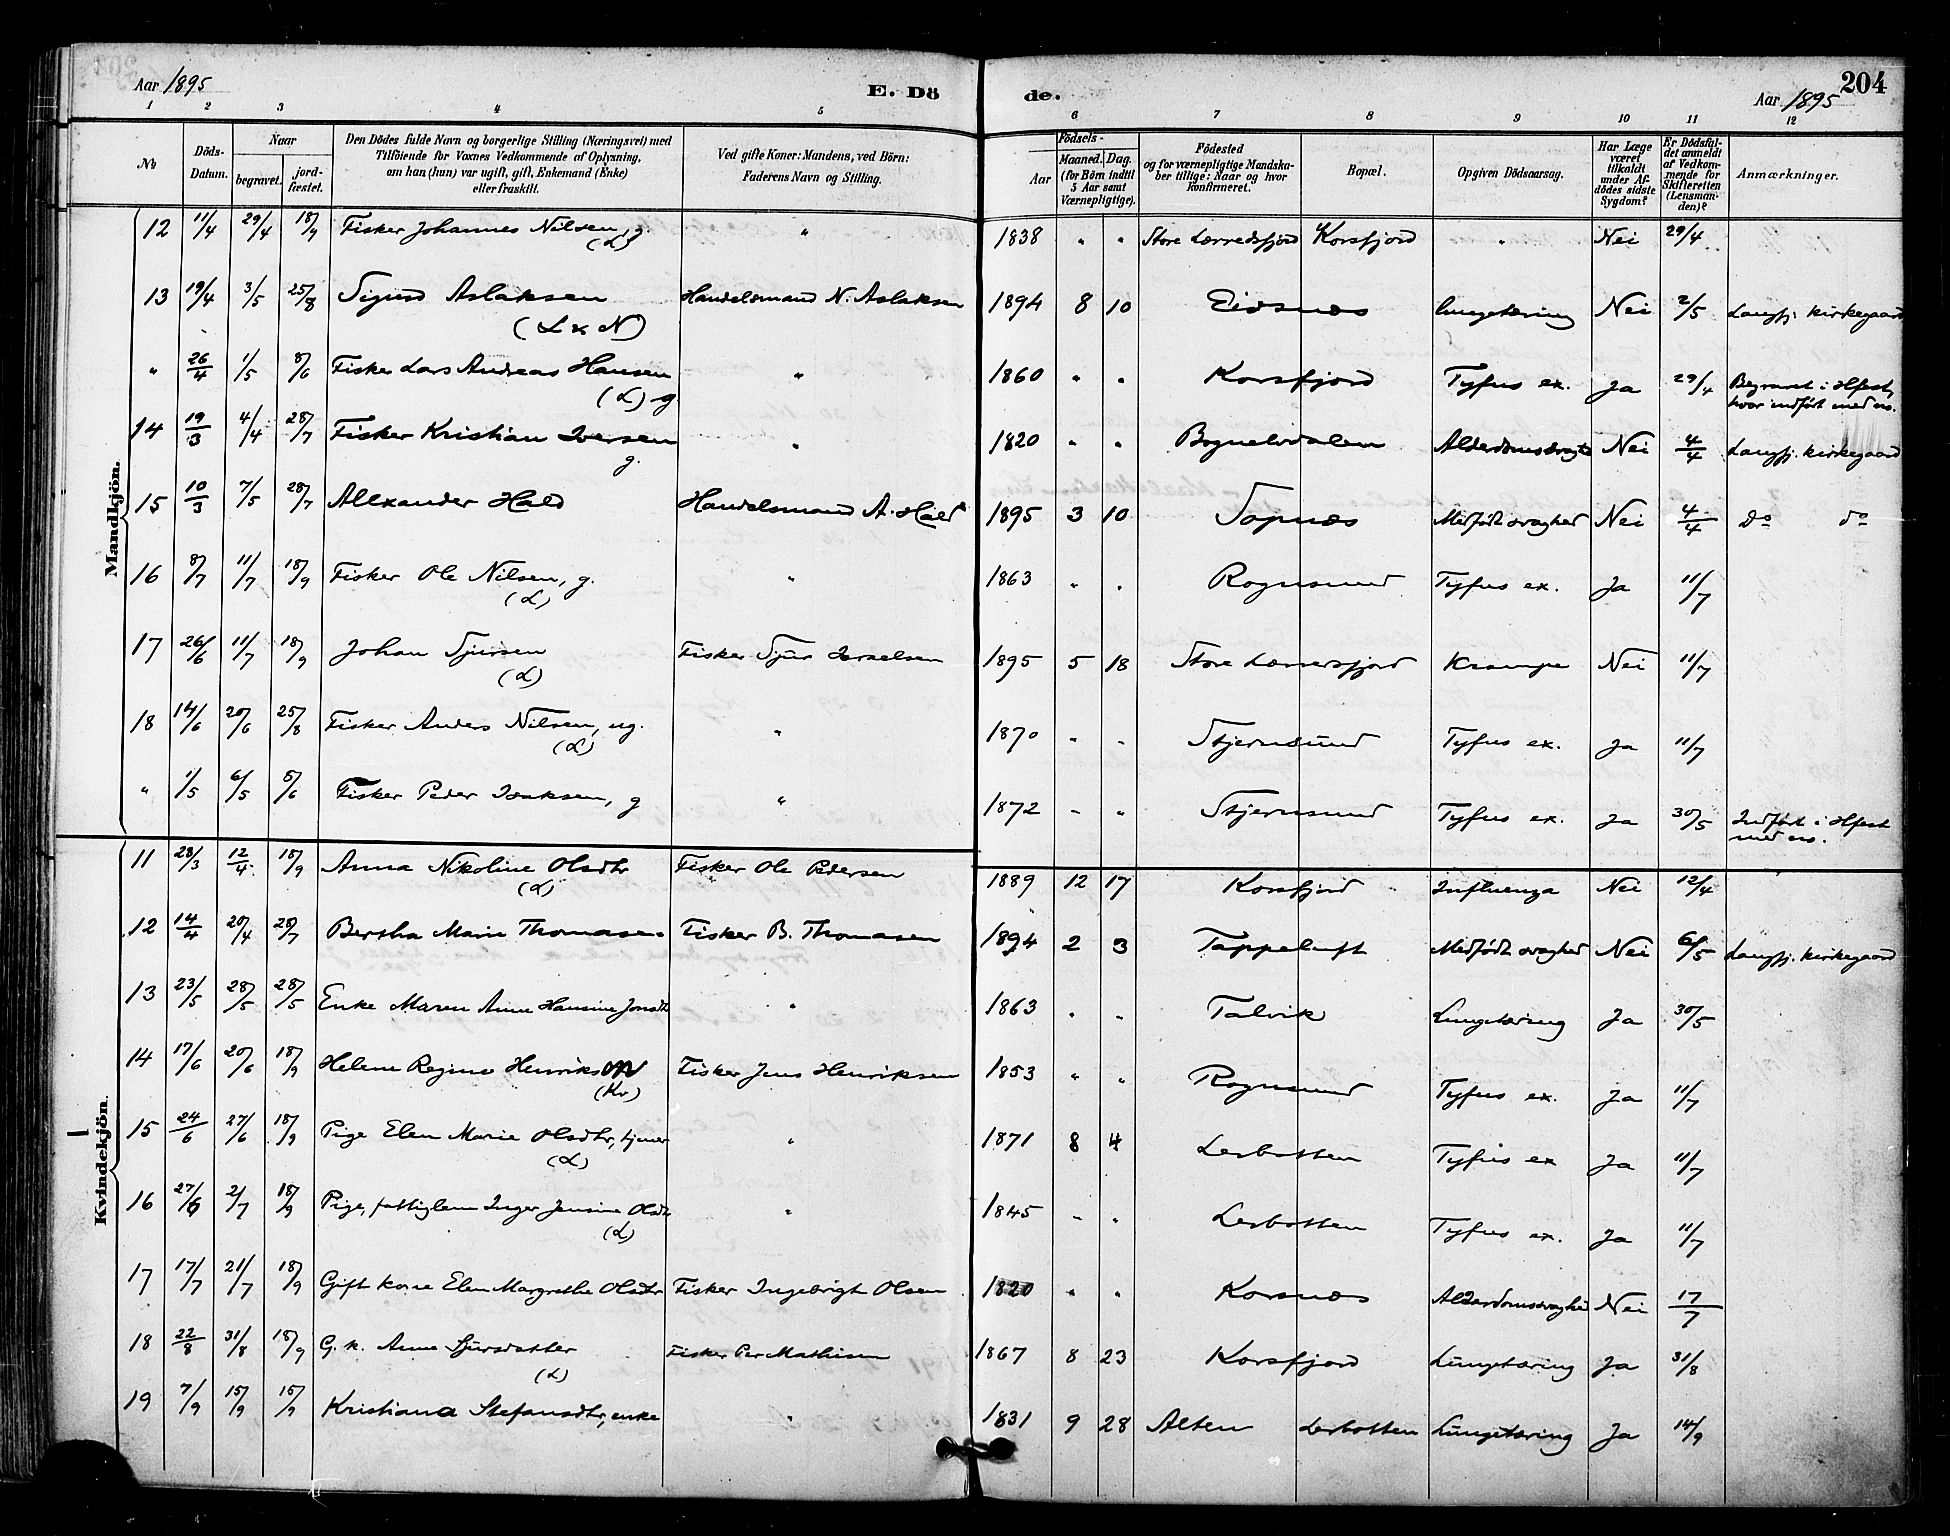 Aar 1895 E. Dö
de. 204
Aar 1895
1 2 3 4 5
6 7 8 9 10 11 12
No Döds-Datum. Naar begravet. jord-fæstet. Den Dödes fulde Navn og borgerlige Stilling (Næringsvei) med Tilföiende for Voxnes Vedkommende af Oplysning, om han (hun) var ugift, gift, Enkemand (Enke) eller fraskilt. Ved gifte Koner: Mandens, ved Börn: Faderens Navn og Stilling.
Födsels- Aar Maaned. Dag. (for Börn indtil 5 Aar samt Værnepligtige). Födested og for værnepligtige Mandska-ber tillige: Naar og hvor Konfirmeret. Bopæl. Opgiven Dödsaarsag. Har Læge været tilkaldt under Af-dödes sidste Sygdom? Er Dödsfal-det anmeldt af Vedkom-mende for Skifteretten (Lensman-den)? Anmærkninger.
Mandkjön.
12 11/4 29/4 18/9 Fisker Johannes Nilsen, g. (L) " 1838 " " Store Lerredsfjord Korsfjord " Nei 29/4
13 19/4 3/5 25/8 Sigurd Aslaksen (L & N) Handelsmand N. Aslaksen 1894 8 10 Eidsnæs lungetæring Nei 2/5 Langfj. kirkegaard
" 26/4 1/5 8/6 Fisker Lars Andreas Hansen (L) g " 1860 " " Korsfjord Tyfus ex. Ja 29/4 Begravet i Hfest, hvor indført med no.
14 19/3 4/4 28/7 Fisker Kristian Iversen g. " 1820 " " Bognelvdalen Alderdomssvagh Nei 4/4 Langfj. kirkegaard
15 10/3 7/5 28/7 Allxander Hald Handelsmand A. Hald 1895 3 10 Sopnæs Medfødt svaghed Nei 4/4 do do
16 8/7 11/7 18/9 Fisker Ole Nilsen, g. (L) " 1863 " " Rognsund Tyfus ex. Ja 11/7
17 26/6 11/7 18/9 Johan Sjursen (L) Fisker Sjur Israelsen 1895 5 18 Store Lerresfjord Krampe Nei 11/7
18 14/6 20/6 25/8 Fisker Anders Nilsen, ug. (L) " 1870 " " Stjernsund Tyfus ex. Ja 11/7
" 1/5 6/5 8/6 Fisker Peder Isaksen, g " 1872 " " Stjernsund Tyfus ex. Ja 30/5 Indført i Hfest med no.
Kvindekjön.
11 28/3 12/4 18/9 Anna Nikoline Olsdtr (L) Fisker Ole Pedersen 1889 12 17 Korsfjord Influenza Nei 12/4
12 14/4 20/4 28/7 Bertha Marie Thomasen Fisker B. Thomasen 1894 2 3 Tappeluft Medfødt svaghed Nei 6/5 Langfj. kirkegaard
13 23/5 28/5 28/5 Enke Maren Anne Hansine Jonsdtr " 1863 " " Talvik Lungetæring Ja 30/5
14 17/6 20/6 18/9 Helene Regine Henriksen (Kv) Fisker Jens Henriksen 1853 " " Rognsund Tyfus ex. Ja 11/7
15 24/6 27/6 18/9 Pige Elen Marie Olsdtr, tjener (L) " 1871 8 4 Lerbotten Tyfus ex Ja 11/7
16 27/6 2/7 18/9 Pige, fattiglem Inger Jensine Olsdtr (L) " 1845 " " Lerbotten Tyfus ex. Ja 11/7
17 17/7 21/7 18/9 Gift kone Elen Margrethe Olsdtr Fisker Ingebrigt Olsen 1820 " " Korsnæs Alderdomssvaghed Nei 17/7
18 22/8 31/8 18/9 G. k. Anne Sjursdatter (L) Fisker Per Mathisen 1867 8 23 Korsfjord Lungetæring Ja 31/8
19 7/9 15/9 15/9 Kristiana Stefansdtr, enke " 1831 9 28 Alten Lerbotten Lungetæring Ja 14/9